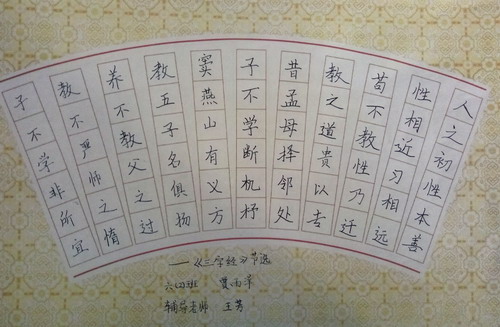 人之初性本善
性相近习相远
苟不教性乃迁
教之道贵以专
昔孟母择邻处
子不学断机杼
窦燕山有义方
教五子名俱扬
养不教父之过
教不严师之惰
子不学非所宜
——《三字经》节选
六四班
辅导老师 王芳